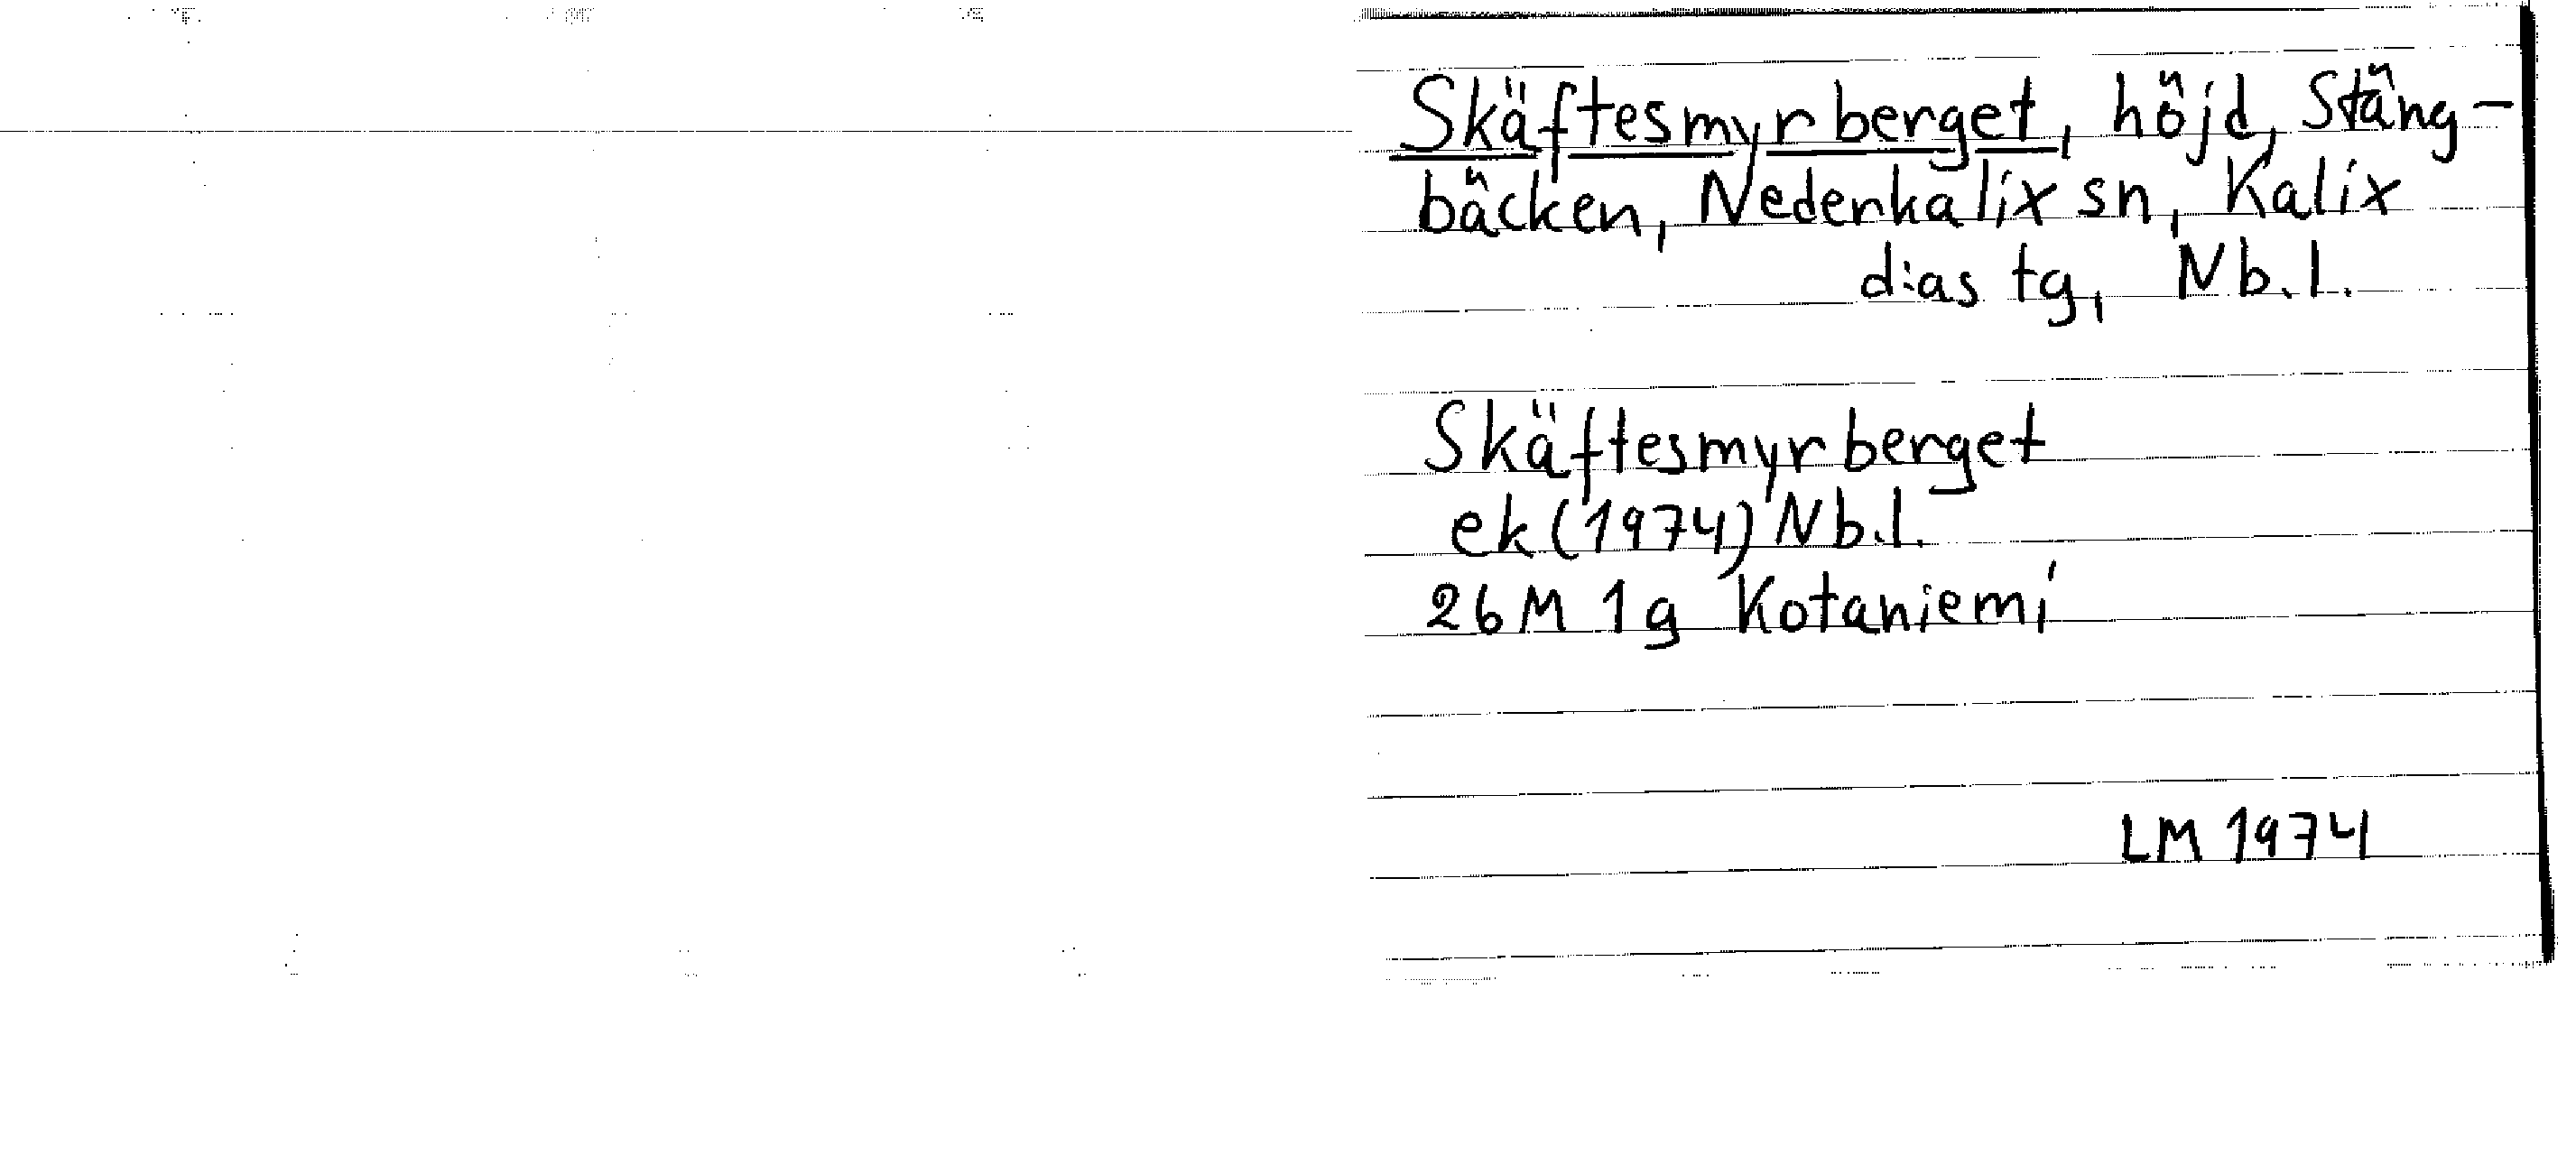 Skäftesmyrberget, höjd, Stäng-
bäcken, Nederkalix sn, Kalix
d:as tg, Nb.l.
Skäftesmyrberget
ek (1974) Nb.l.
26M 1g Kotaniemi
LM 1974